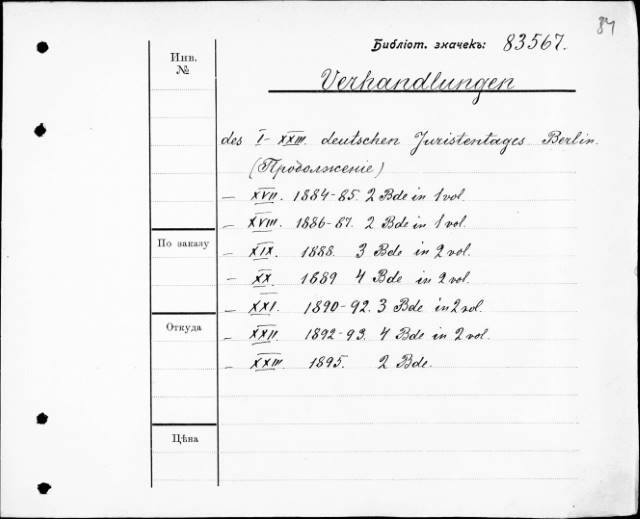 84
Библіот. значекъ: 83567.
Инв.
№
Verhandlungen
des I-XXIII. deutschen Juristentages Berlin.
(Продолженіе)
— XVII. 1884-85. 2 Bde in 1 vol.
— XVIII. 1886-87. 2 Bde in 1 vol.
По заказу
— XIX. 1888. 3 Bde in 2 vol.
— XX. 1889 4 Bde in 2 vol.
— XXI. 1890-92. 3 Bde in 2 vol.
Откуда
— XXII. 1892-93. 4 Bde in 2 vol.
— XXIII. 1895. 2 Bde.
Цѣна